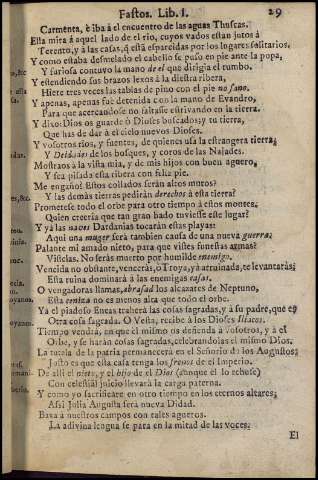 Fastos. Lib. I. 29
Carmenta, è iba à el encuentro de las aguas Thuscas.
Esta mira à aquel lado de el rio, cuyos vados estan jutos à
Terento, y à las casas, q̃ està esparcidas por los lugares solitarios.
Y como estaba desmelado el cabello se puso en pie ante la popa,
Y furiosa contuvo la mano de el que dirigia el rumbo.
Y estendiendo sus brazos lexos à la diestra ribera,
Hiere tres veces las tablas de pino con el pie no sano.
Y apenas, apenas fue detenida con la mano de Evandro,
Para que acercandose no saltasse estrivando en la tierra.
Y dixo: Dios os guarde ò Dioses buscados; y tu tierra,
Que has de dar à el cielo nuevos Dioses.
Y vosotros rios, y fuentes, de quienes usa la estrangera tierra;
Y Deidades de los bosques, y coros de las Najades.
Mostraos à la vista mia, y de mis hijos con buen aguero,
Y sea pisada esta ribera con feliz pie.
Me engaño! Estos collados seràn altos muros?
Y las demàs tierras pediràn derechos à esta tierra?
Prometese todo el orbe para otro tiempo à estos montes;
Quien creeria que tan gran hado tuviesse este lugar?
Y yà las naves Dardanias tocaràn estas playas:
Aqui una muger serà tambien causa de una nueva guerra;
Palante mi amado nieto, para que vistes funestas armas?
Vistelas. No seràs muerto por humilde enemigo.
Vencida no obstante, venceràs, ò Troya, yà arruinada, te levantaràs;
Esta ruina dominarà à las enemigas casas.
O vengadoras llamas, abrasad los alcazares de Neptuno,
Esta ceniza no es menos alta que todo el orbe.
Ya el piadoso Eneas traherà las cosas sagradas, y à su padre, que es
Otra cosa sagrada. O Vesta, recibe à los Dioses Iliacos.
Tiempo vendrà, en que el mismo os defienda à vosotros, y à el
Orbe, y se haràn cosas sagradas, celebrandolas el mismo Dios.
La tutela de la patria permanecerà en el Señorio de los Augustos;
Justo es que esta casa tenga los frenos de el Imperio.
De alli el nieto, y el hijo de el Dios (aunque èl lo rehuse)
Con celestial juicio llevarà la carga paterna.
Y como yo sacrificare en otro tiempo en los eternos altares;
Assi Julia Augusta serà nueva Didad.
Baxa à nuestros campos con tales agueros.
La adivina lengua se para en la mitad de las voces.
El